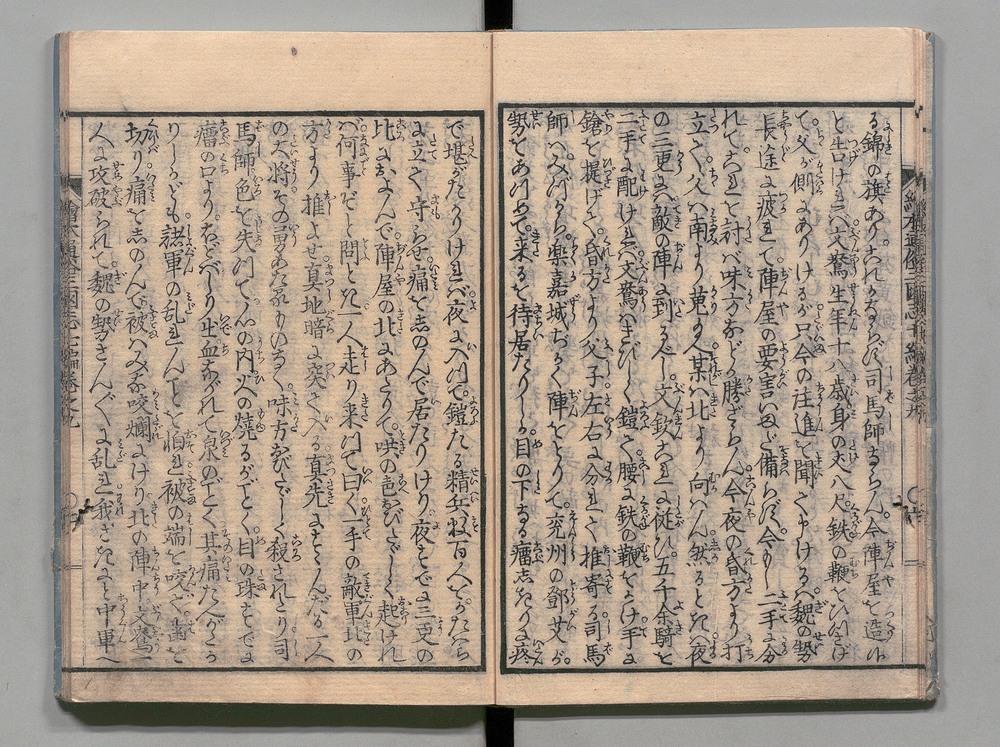 る錦の旗ありこれかならず司馬師ならん今陣屋を造ル
と告けれバ文鴦生年十八歳身の丈八尺鉄の鞭をひつさげ
て父が側にありけるが只今の注進を聞て申けるハ魏の勢
長途に疲れて陣屋の要害いまだ備らず今もし二手に分
れてこれを討バ味方などか勝ざらん今夜の昏方より打
立て父ハ南より蒐り某ハ北より向ハん然るときハ夜
の三更にハ敵の陣に到るべし文欽これに従ひ五千余騎を
二手に配けれバ文鴦ハきびしく鎧て腰に鉄の鞭をかけ手に
鎗を提げて昏方より父子左右に分れて推寄る司馬
師ハみづから楽嘉城ちかく陣をとりて兗州の鄧艾が
勢をあつめて来るを待居たりしが目の下なる瘤しきりに疼
で堪がたかりけれバ夜に入つて鎧たる精兵数百人をかたハら
に立て守らせ痛をしのんで居たりけり夜すでに三更の
比におよんで陣屋の北にあたりて哄の色おびたゝしく起けれ
バ何事ぞと問ときに一人走り来つて曰く一手の敵軍北の
方より推よせ真地暗に突て入る真先にすゝんだる一人
の大将その勇あたるべからず味方おびたゝしく殺されたり司
馬師色を失つて心の内火の焼るがごとく目の珠すでに
瘤の口よりほとバしり出血ながれて泉のごとく其痛たへがた
かりしかども諸軍の乱れんことを怕れ被の端を咬て歯を
切り痛をしのんで被ハみな咬爛にけり北の陣中文鴦
人に攻破られて魏の勢さん〴〵に乱れ我さきにと中軍へ
繪本通俗三國志七編巻之九